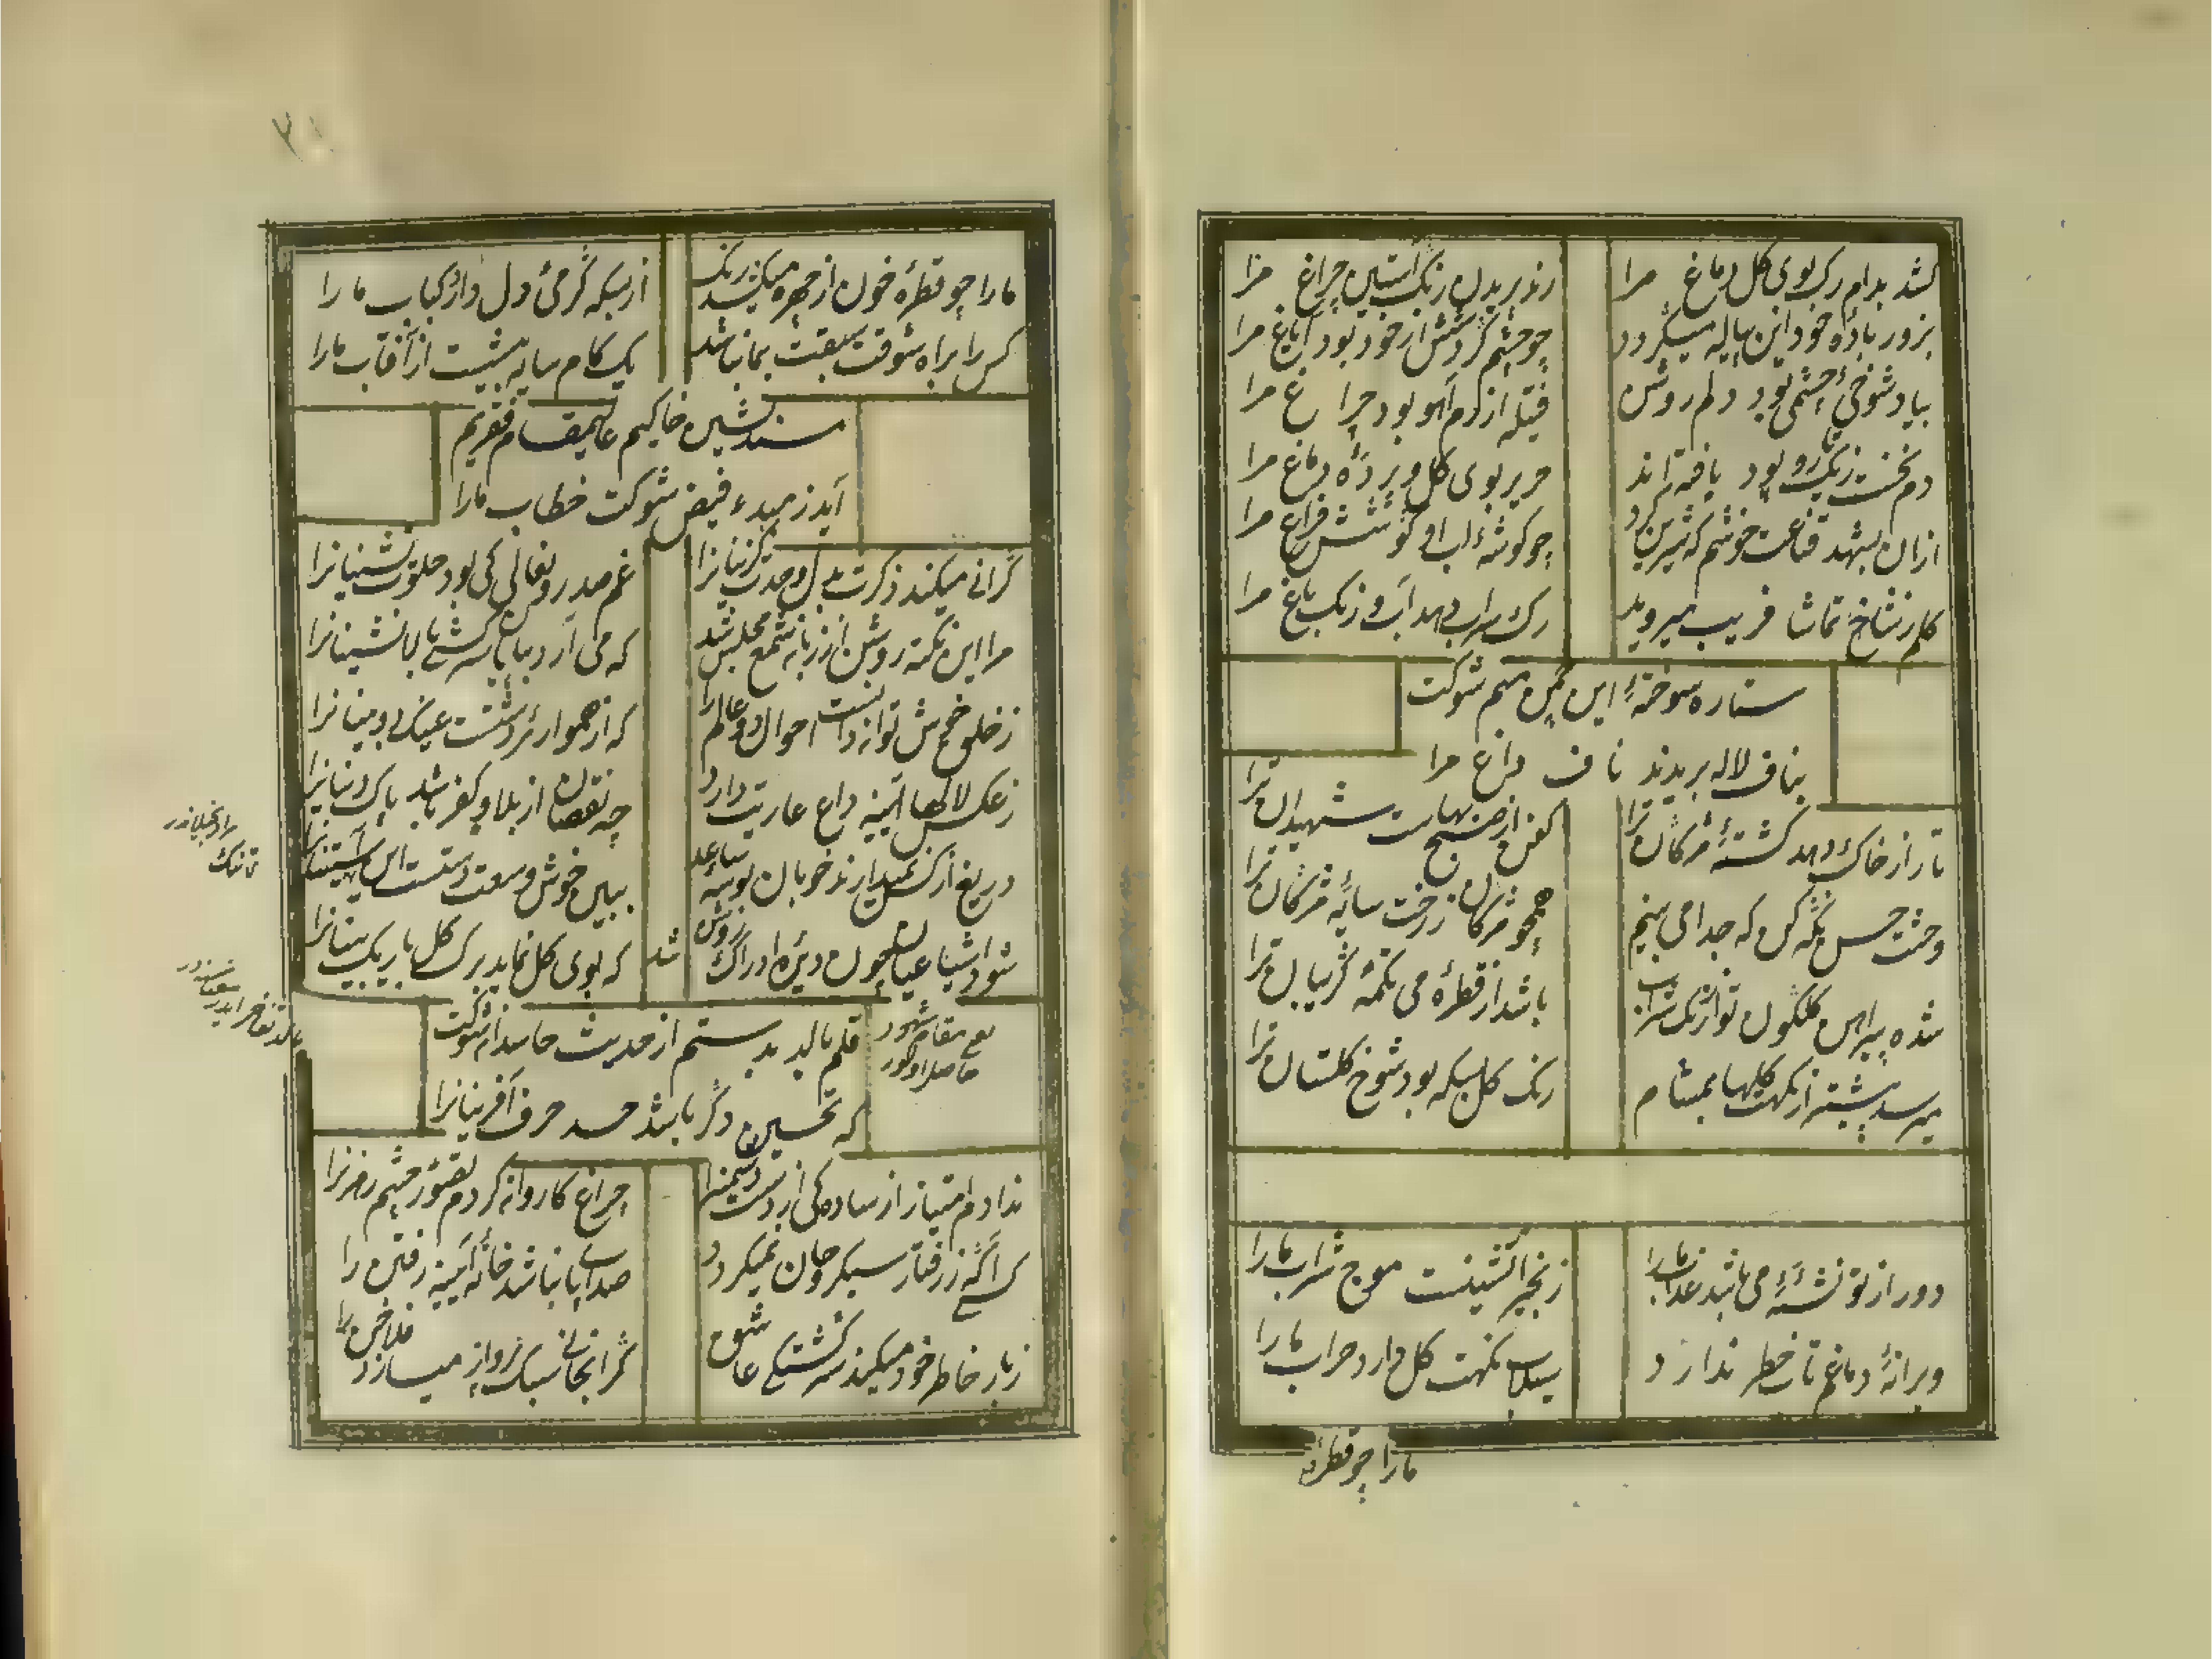 کشد بدام رک بوی کل دماغ مرا
رند پریدن رنک آستین چراغ مرا
بزور باده خود این پیاله میکردد
چو چشم کردش از خود بود ایاغ مرا
بیاد شوخی چشمی بود دلم روشن
فتیله از رم آهو بود چراغ مرا
دم نخست زیک تار و پود یافته اند
حریر بوی کل و پردهٔ دماغ مرا
ازان بشهد قناعت خوشم که شیرین کرد
چو کوشهٔ لب او کوشش فراغ مرا
کلم ز شاخ تماشا فریب میروید
رک سراب دهد آب و رنک باغ مرا
ستاره سوختهٔ این چمن منم شوکت
بناف لاله بریدند ناف داغ مرا
تار از خاک دهد کشتهٔ مژکان ترا
کفن از صبح بهارست شهیدان ترا
وحشت حسن نکه کن که جدا می بینم
همچو مژکان ز رخت سایهٔ مژکان ترا
شده پیراهن کلکون تو از رنک شراب
باشد از قطرهٔ می تکمه کریبان ترا
میرسد پیشتر از نکهت کلها بمشام
رنک کل بسکه بود شوخ کلستان ترا
دور از تو نشئهٔ می باشد عذاب ما را
زنجیر آتشینست موج شراب ما را
ویرانهٔ دماغم تاب خطر ندارد
سیلاب نکهت کل دارد خراب ما را
ما را چو قطرهٔ
ما را چو قطرهٔ خون از چهره میکشد رنک
از بسکه کرمی دل دارد کباب ما را
کس را براه شوقت سبقت بما نباشد
یک کام سایه پیشست از آفتاب ما را
مسند نشین خاکیم عالیمقام فقریم
آید ز مبدء فیض شوکت خطاب ما را
کرانی میکند ذکرت بدل وحدت کزینانرا
غم صدر و نعالی کی بود خلوت نشینانرا
مرا این نکته روشن از زبان شمع مجلس شد
که می آرد بپا سرکشی بالانشینانرا
ز خلق خویش توان دانست احوال دو عالم را
که از همواری رشتست عینک دوربینانرا
ز عکس لاله‌ها آیینه داغ عاریت دارد
چه نقصان از بلا و کفر باشد پاک دینانرا
دریغ از کس نمیدارند خوبان بوسهٔ ساعد
ببین خوش وسعت دستست این آستینانرا
شود اشیا عیان چون دیدهٔ ادراک روشن شد
که بوی کل نماید برک کل باریک بینانرا
قلم بالد بدستم از حدیث حاسدان شوکت
که تحسین دکر باشد حسد حرف آفرینانرا
ندادم امتیاز از ساده‌کی از دوست دشمن را
چراغ کاروان کردم تصور چشم رهزن را
کسی آکه ز رفتار سبکروحان نمیکردد
صدای پا نباشد خانهٔ آیینه رفتن را
ز بار خاطر خود میکند سرکشتکی عاشق
کرانجانی سبک پرواز میسازد فلاخن را